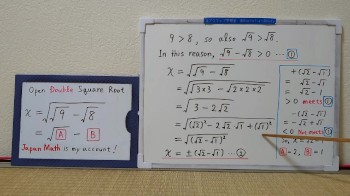 Open Double Square Root
x = √√9 - √8
= √A - √B
Japan Math is my account!
9 > 8, so also √9 > √8.
In this reason, √9 - √8 > 0 … ①
x = √√9 - √8
= √√3×3 - √2×2×2
= √3 - 2√2
= √(√2)² - 2√2·√1 + (√1)²
= √(√2 - √1)²
x = ±(√2 - √1) … ②
+(√2 - √1)
= √2 - √1
= √2 - 1
> 0 meets ①
-(√2 - √1)
= -√2 + √1
< 0 Not meets ①
So, x = √2 - 1
A = 2, B = 1